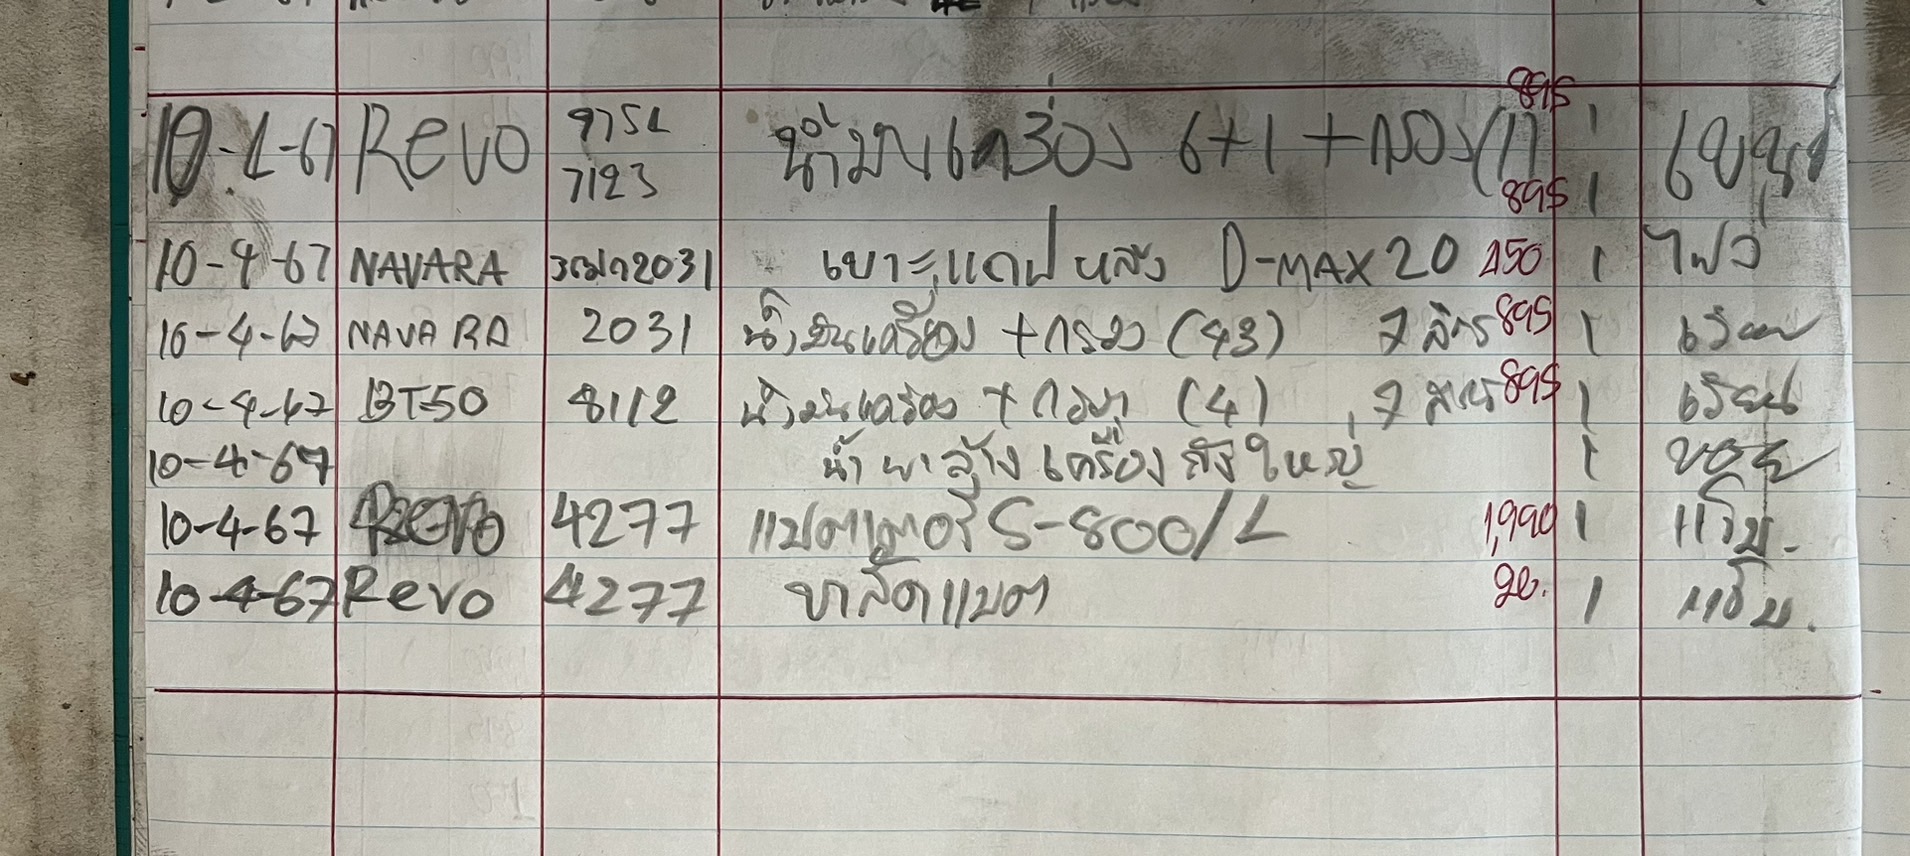 895
10-4-67 Revo 975L น้ำมันเครื่อง 6+1 +กรอง(11) 1
7123 895 1
10-4-67 NAVARA 2031 เบาะแคปหลัง D-MAX 20 250 1 ไฟว์
10-4-67 NAVARA 2031 น้ำมันเครื่อง +กรอง (43) 7 ลิตร 895 1
10-4-67 BT-50 8112 น้ำมันเครื่อง + กรอง (4) 7 ลิตร 895 1
10-4-67 น้ำยาล้างเครื่อง ถังใหญ่ 1
10-4-67 Revo 4277 แบตเตอรี่ S-800/L 1,990 1
10-4-67 Revo 4277 ขารัดแบต 20. 1